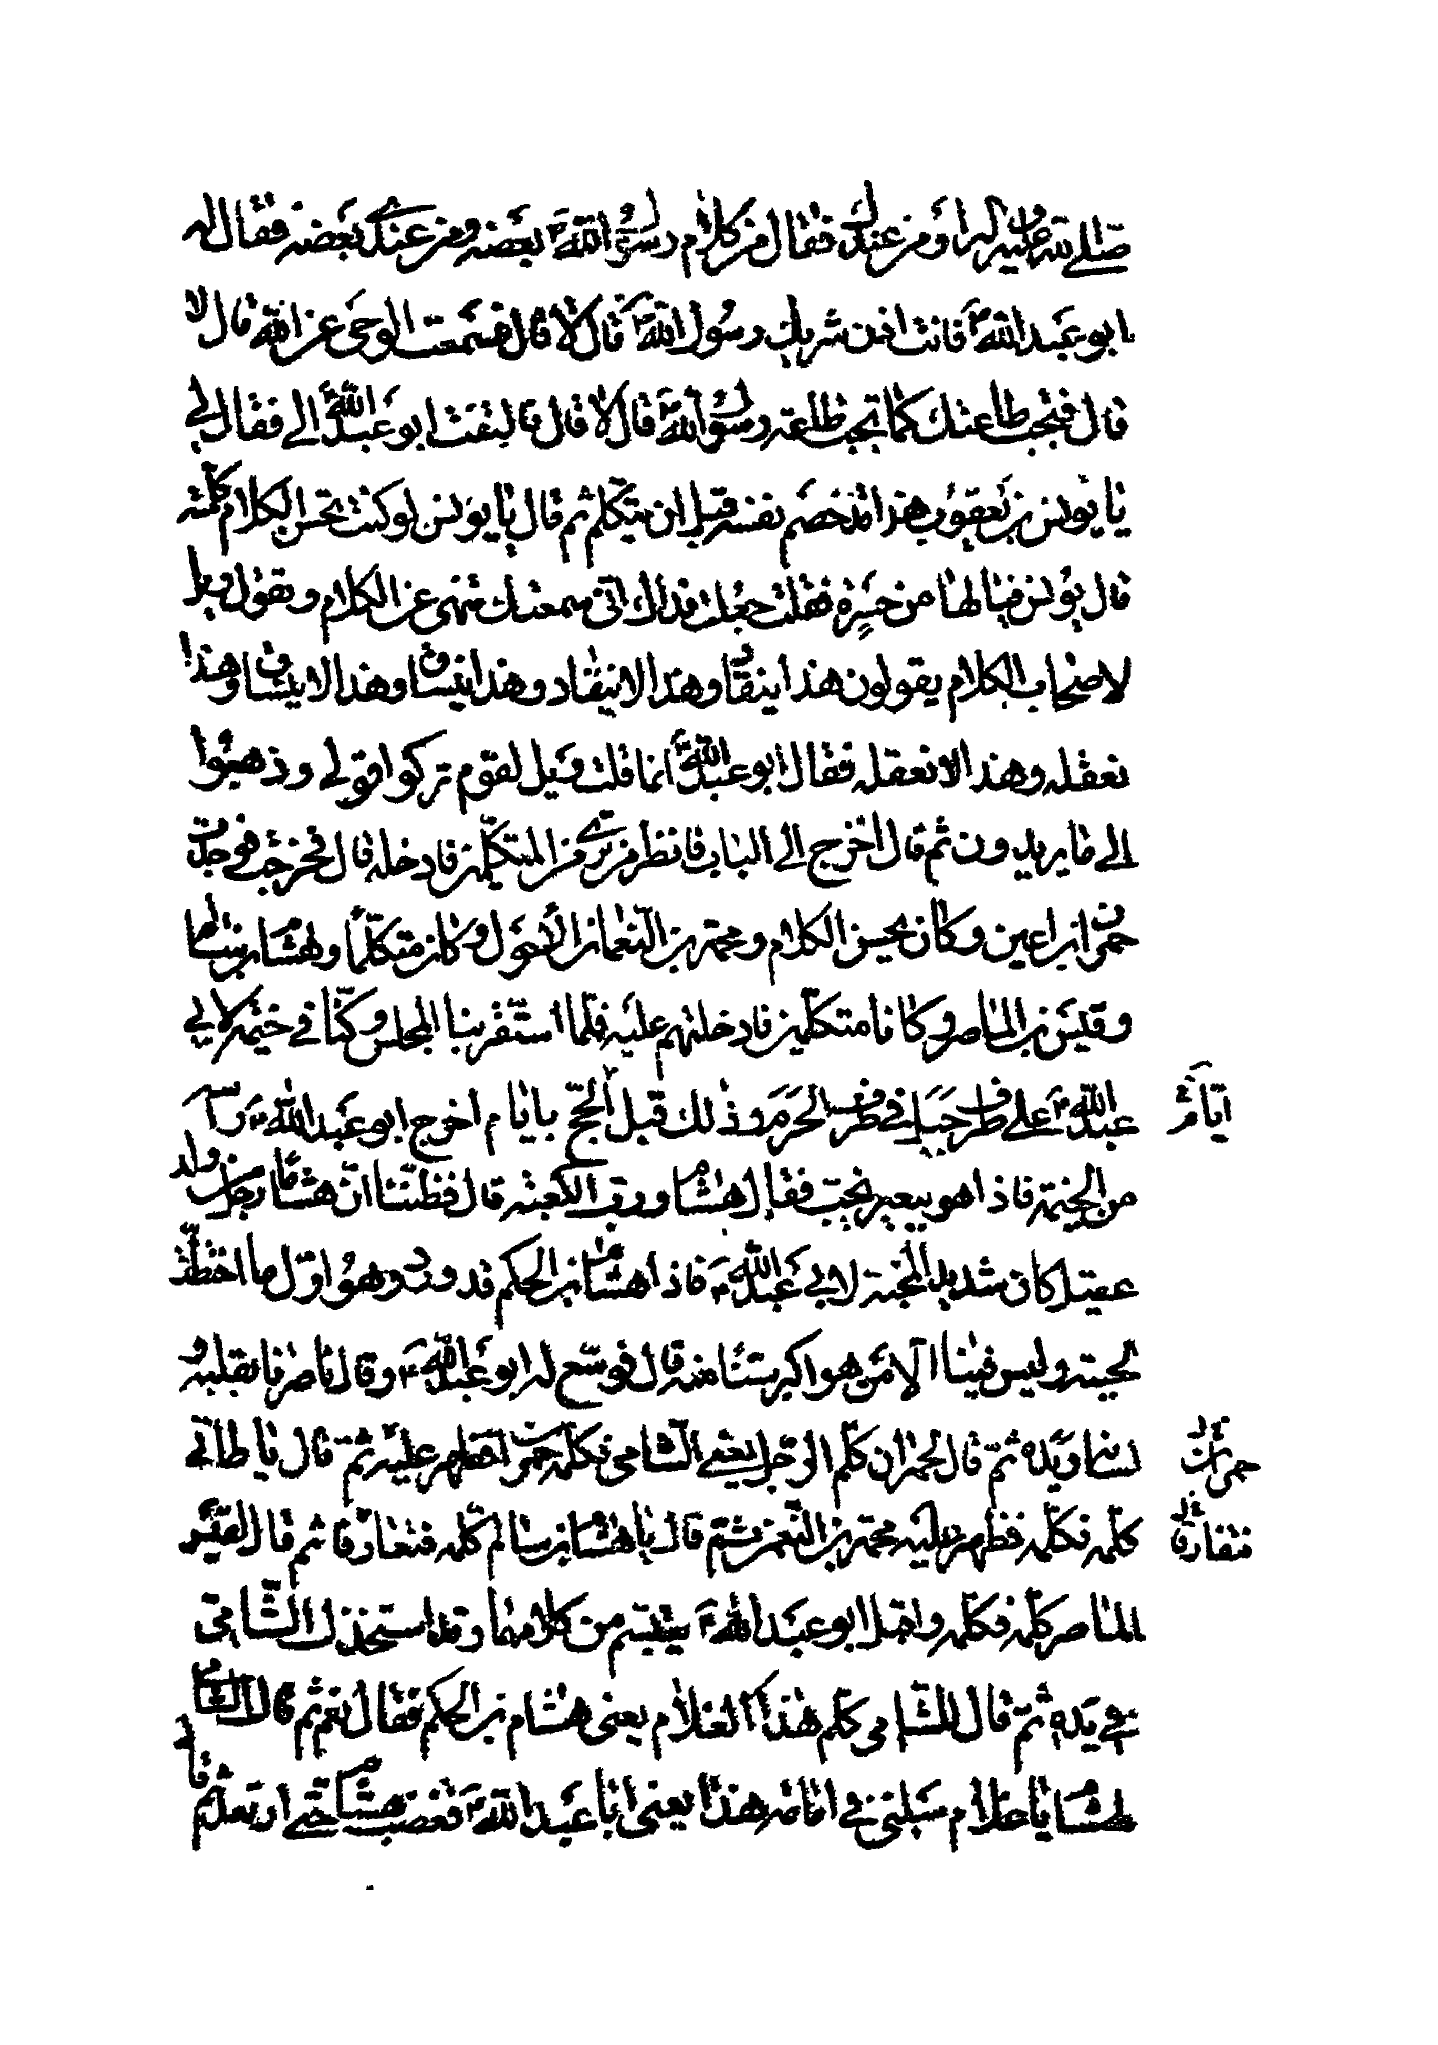 صلى الله عليه وآله او من عندك فقال من كلام رسول الله ص بعضه ومن عندي بعضه فقال له
ابو عبد الله ع فانت اذن شريك رسول الله ص قال لا قال فسمعت الوحي عن الله قال لا
قال فتجب طاعتك كما تجب طاعة رسول الله ص قال لا قال فالتفت ابو عبد الله ع الي فقال لي
يا يونس بن يعقوب هذا قد خصم نفسه قبل ان يتكلم ثم قال يا يونس لو كنت تحسن الكلام كلمته
قال يونس فيا لها من حسرة فقلت جعلت فداك اني سمعتك تنهى عن الكلام وتقول ويل
لاصحاب الكلام يقولون هذا ينقاد وهذا لا ينقاد وهذا ينساق وهذا لا ينساق وهذا
نعقله وهذا لا نعقله فقال ابو عبد الله ع انما قلت فويل لقوم تركوا قولي وذهبوا
الى ما يريدون ثم قال اخرج الى الباب فانظر من ترى من المتكلمين فادخله قال فخرجت فوجدت
حمران ابن اعين وكان يحسن الكلام ومحمد بن النعمان الاحول وكان متكلما وهشام بن سالم
وقيس بن الماصر وكانا متكلمين فادخلتهم عليه فلما استقر بنا المجلس وكنا في خيمة لابي
عبد الله ع على طرف جبل في طرف الحرم وذلك قبل الحج بايام اخرج ابو عبد الله ع راسه
من الخيمة فاذا هو ببعير يخب فقال هشام ورب الكعبة قال فظننا ان هشاما رجل من ولد
عقيل كان شديد المحبة لابي عبد الله ع فاذا هشام بن الحكم قد ورد وهو اول ما اختطت
لحيته وليس فينا الا من هو اكبر سنا منه قال فوسع له ابو عبد الله ع وقال ناصرنا بقلبه و
لسانه ويده ثم قال لحمران كلم الرجل يعني الشامي فكلمه حمران فظهر عليه ثم قال يا طاقي
كلمه فكلمه فظهر عليه محمد بن النعمن ثم قال يا هشام بن سالم كلمه فتعارفا ثم قال لقيس
الماصر كلمه فكلمه واقبل ابو عبد الله ع يتبسم من كلامهما وقد استخذل الشامي
في يده ثم قال للشامي كلم هذا الغلام يعني هشام بن الحكم فقال نعم ثم قال الشامي
لهشام يا غلام سلني في امامة هذا يعني ابا عبد الله ع فغضب هشام حتى ارتعد ثم قال
ايام
حمران
فتفارقا